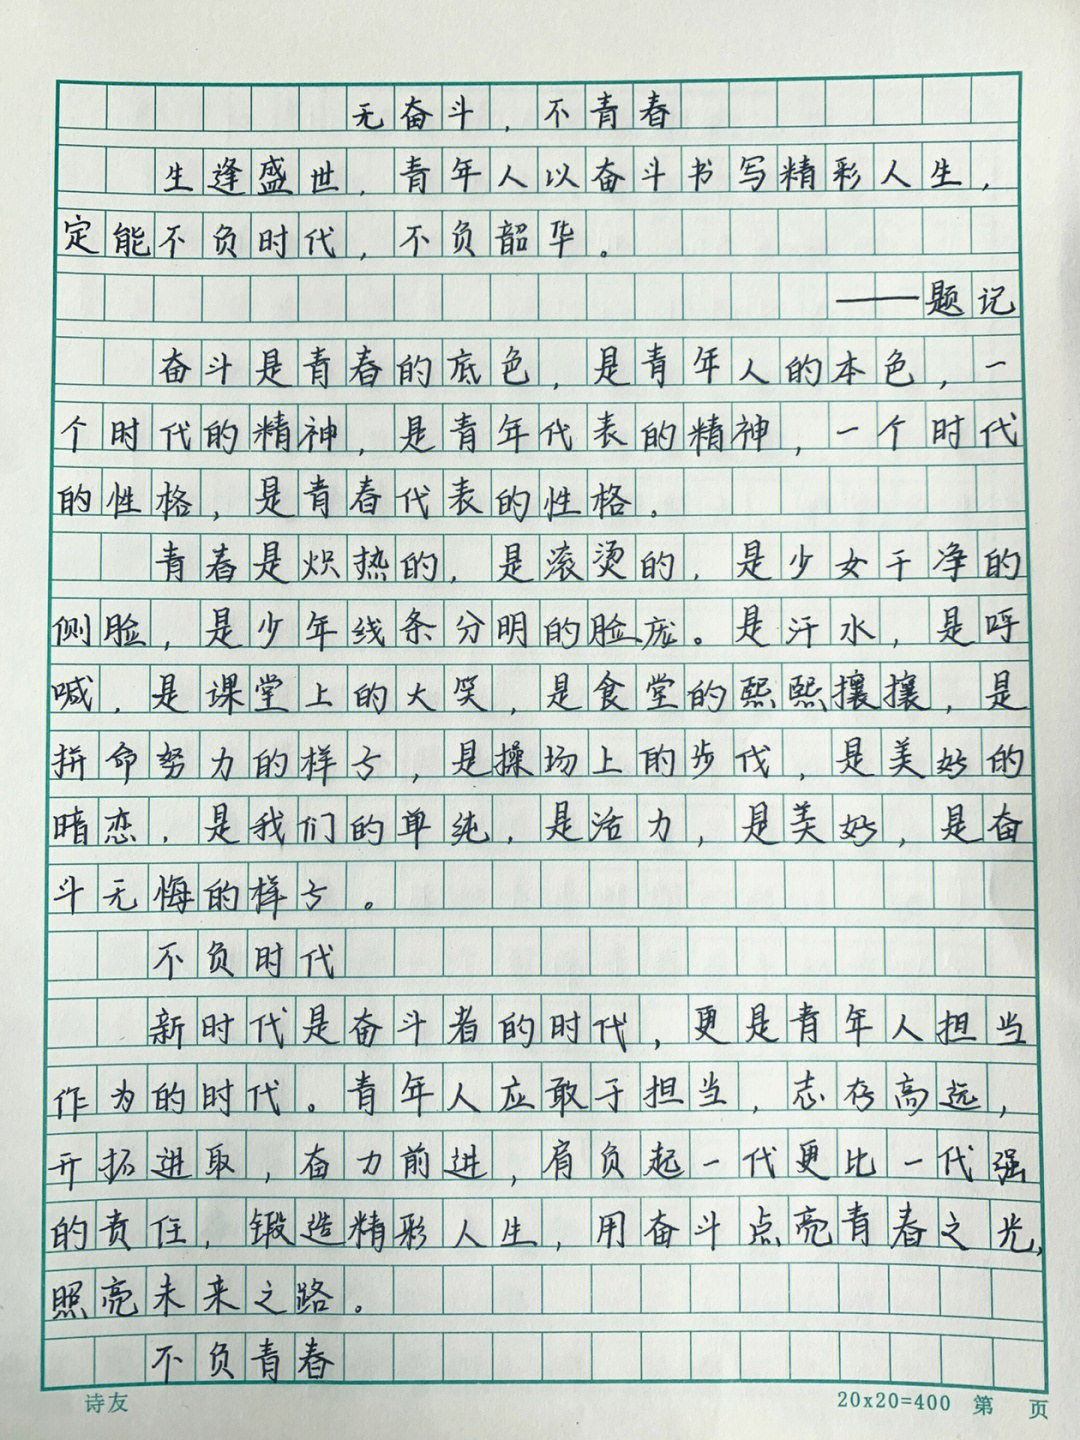 无奋斗，不青春
生逢盛世，青年人以奋斗书写精彩人生，
定能不负时代，不负韶华。
——题记
奋斗是青春的底色，是青年人的本色，一
个时代的精神，是青年代表的精神，一个时代
的性格，是青春代表的性格。
青春是炽热的，是滚烫的，是少女干净的
侧脸，是少年线条分明的脸庞。是汗水，是呼
喊，是课堂上的大笑，是食堂的熙熙攘攘，是
拼命努力的样子，是操场上的步代，是美好的
暗恋，是我们的单纯，是活力，是美好，是奋
斗无悔的样子。
不负时代
新时代是奋斗者的时代，更是青年人担当
作为的时代。青年人应敢于担当，志存高远，
开拓进取，奋力前进，肩负起一代更比一代强
的责任，锻造精彩人生，用奋斗点亮青春之光，
照亮未来之路。
不负青春
诗友 20x20=400 第 页